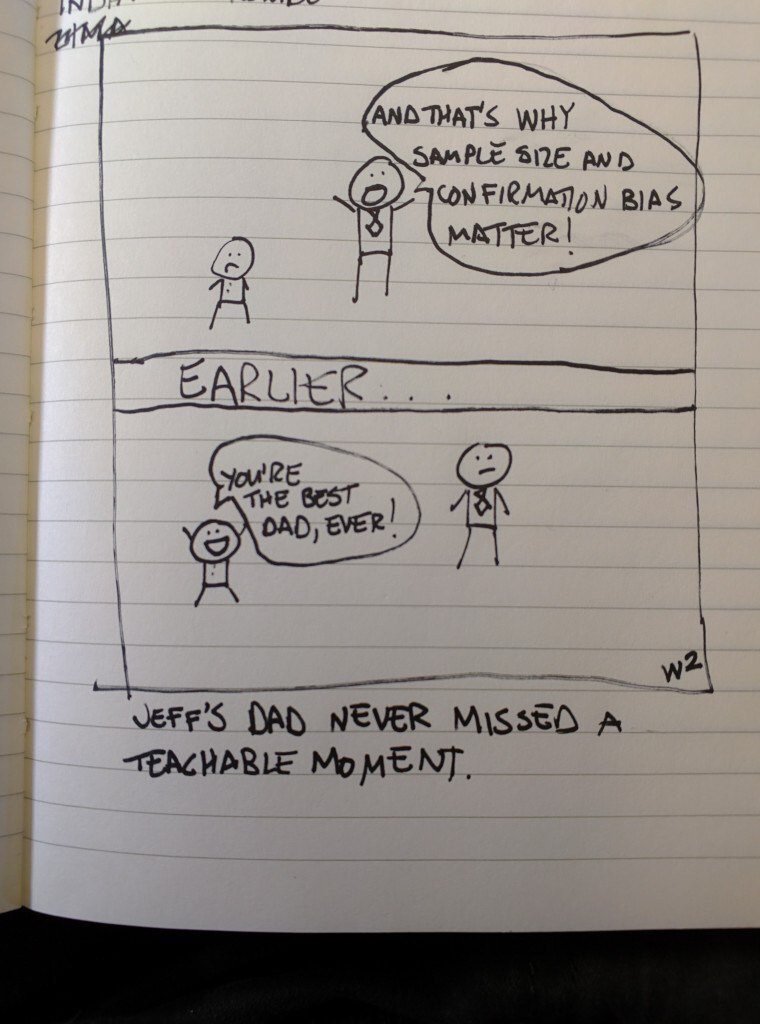 AND THAT'S WHY
SAMPLE SIZE AND
CONFIRMATION BIAS
MATTER!
EARLIER...
YOU'RE
THE BEST
DAD, EVER!
W2
JEFF'S DAD NEVER MISSED A
TEACHABLE MOMENT.